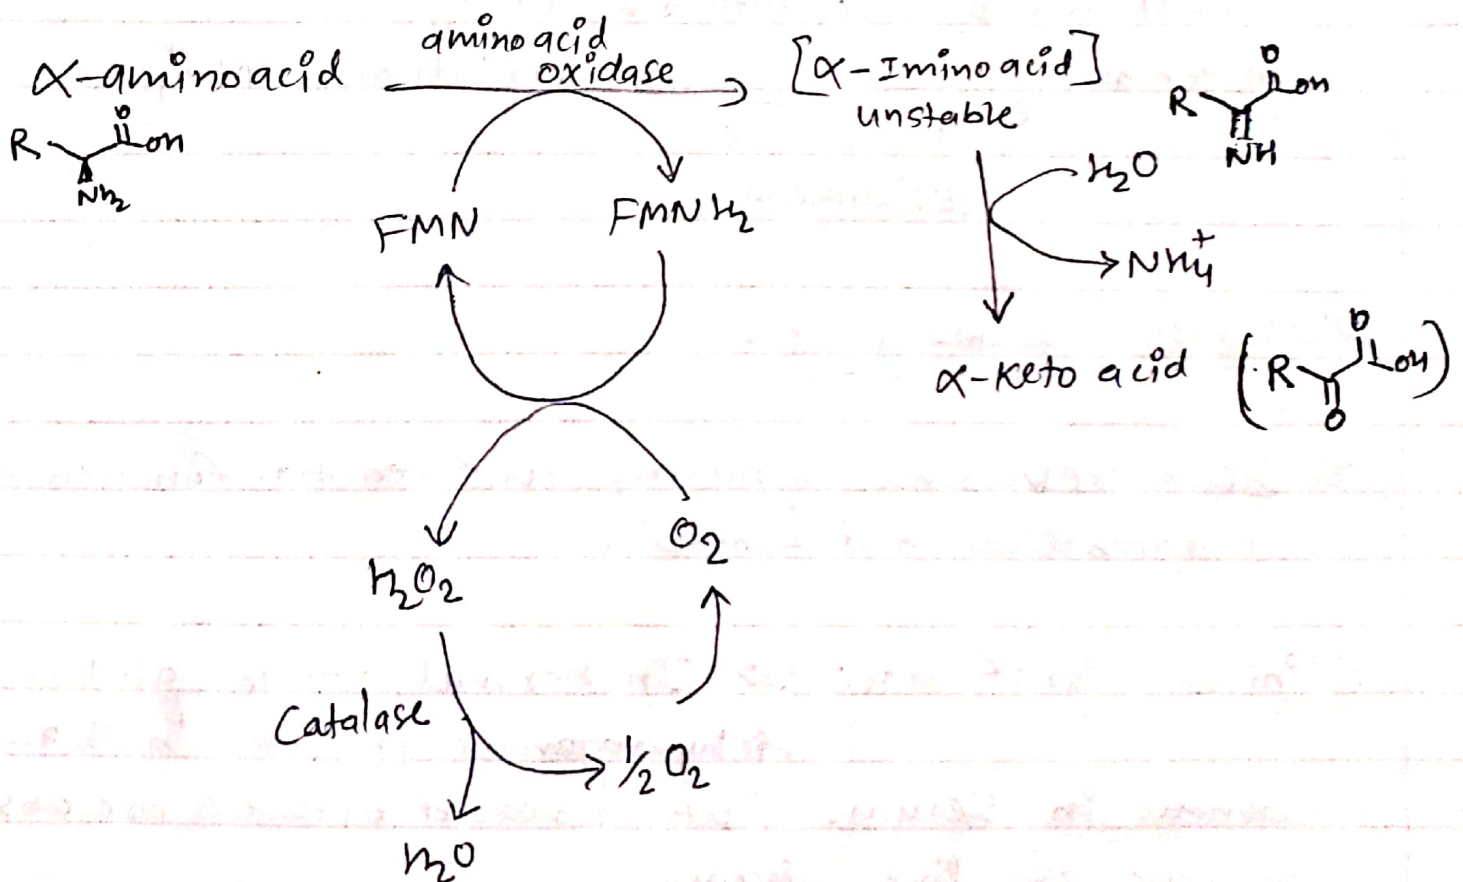 α-aminoacid
aminoacid
oxidase
[α-Iminoacid]
unstable
R
O
OH
NH2
R
O
OH
NH
H2O
NH4+
FMN
FMNH2
α-Keto acid
(R
O
OH)
O
H2O2
O2
Catalase
1/2 O2
H2O